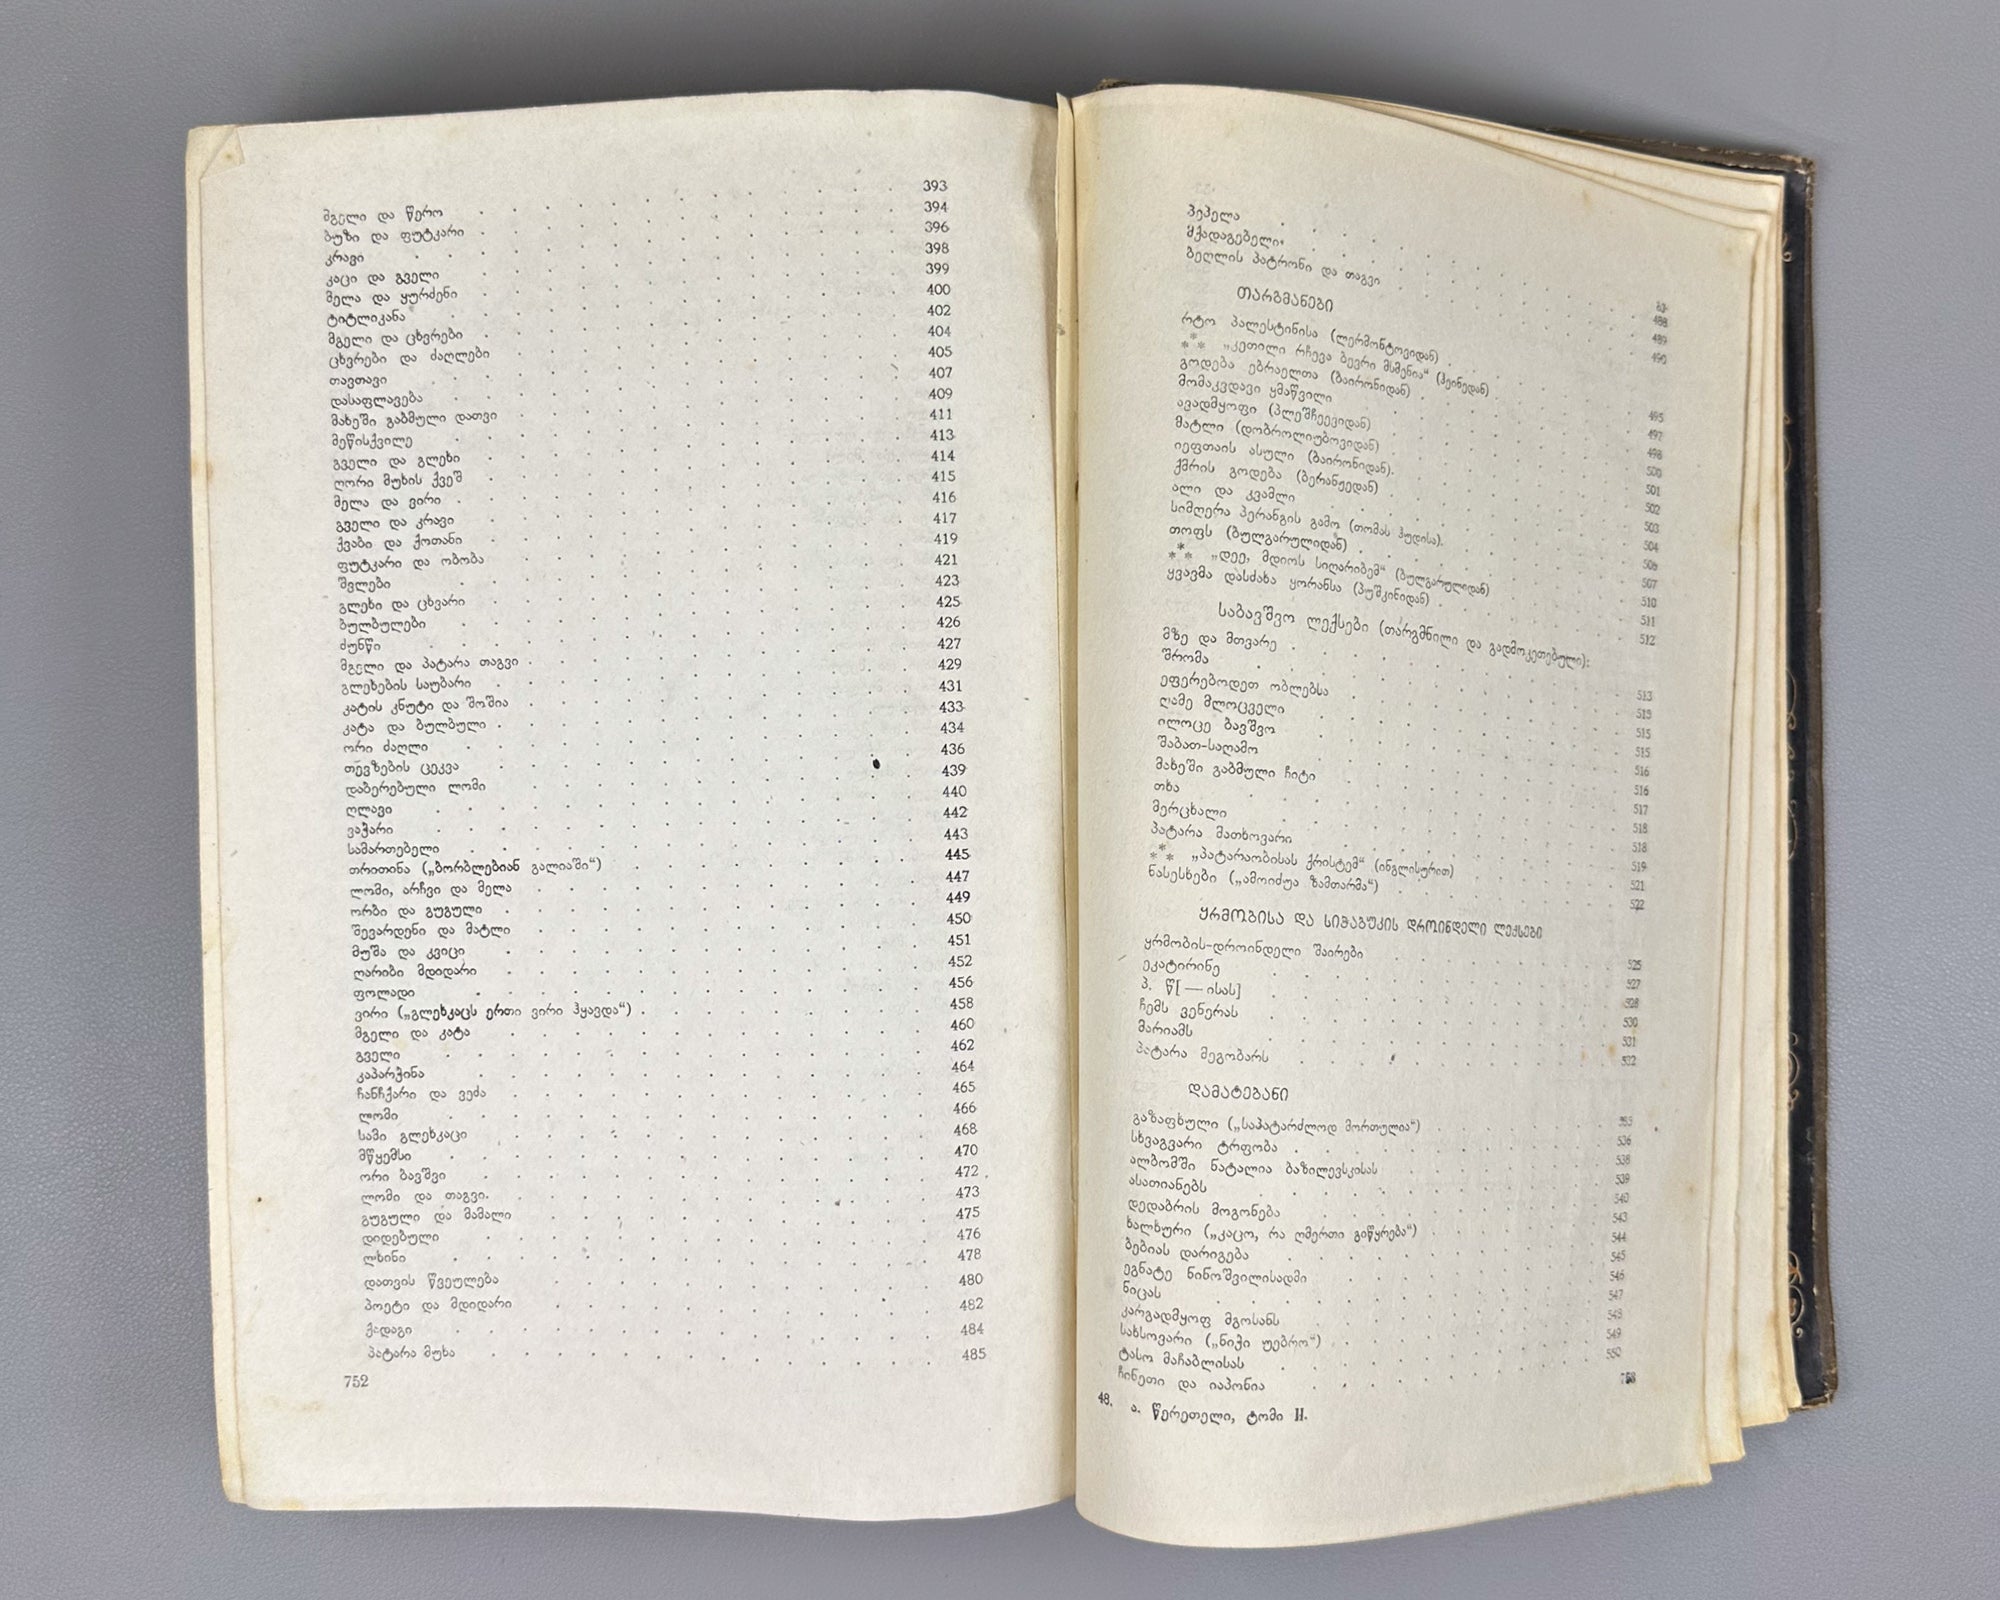 მგელი და წერო . . . 393
ბუზი და ფუტკარი . . . 394
კრავი . . . 396
კაცი და გველი . . . 398
მელა და ყურძენი . . . 399
ტიტლიკანა . . . 400
მგელი და ცხვრები . . . 402
ცხვრები და ძაღლები . . . 404
თავთავი . . . 405
დასაფლავება . . . 407
მახეში გაბმული დათვი . . . 409
მეწისქვილე . . . 411
გველი და გლეხი . . . 413
ღორი მუხის ქვეშ . . . 414
მელა და ვირი . . . 415
გველი და კრავი . . . 416
ქვაბი და ქოთანი . . . 417
ფუტკარი და ობობა . . . 419
შვლები . . . 421
გლეხი და ცხვარი . . . 423
ბულბულები . . . 425
ძუნწი . . . 426
მგელი და პატარა თაგვი . . . 427
გლეხების საუბარი . . . 429
კატის კნუტი და შოშია . . . 431
კატა და ბულბული . . . 433
ორი ძაღლი . . . 434
თევზების ცეკვა . . . 436
დაბერებული ლომი . . . 439
ღლავი . . . 440
ვაჭარი . . . 442
სამართებელი . . . 443
თრითინა („ბორბლებიან გალიაში“) . . . 445
ლომი, არჩვი და მელა . . . 447
ორბი და გუგული . . . 449
შევარდენი და მატლი . . . 450
მუშა და კვიცი . . . 451
ღარიბი მდიდარი . . . 452
ფოლადი . . . 456
ვირი („გლეხკაცს ერთი ვირი ჰყავდა“) . . . 458
მგელი და კატა . . . 460
გველი . . . 462
კაპარჭინა . . . 464
ჩანჩქარი და ვეძა . . . 465
ლომი . . . 466
სამი გლეხკაცი . . . 468
მწყემსი . . . 470
ორი ბავშვი . . . 472
ლომი და თაგვი . . . 473
გუგული და მამალი . . . 475
დიდებული . . . 476
ლხინი . . . 478
დათვის წვეულება . . . 480
პოეტი და მდიდარი . . . 482
ქადაგი . . . 484
პატარა მუხა . . . 485
752
პეპელა . . . 488
მქადაგებელი . . . 489
ბეღლის პატრონი და თაგვი . . . 490
თარგმანები
რტო პალესტინისა (ლერმონტოვიდან) . . . 495
*** „კეთილი რჩევა ბევრი მსმენია“ (ჰეინედან) . . . 497
გოდება ებრაელთა (ბაირონიდან) . . . 498
მომაკვდავი ყმაწვილი . . . 500
ავადმყოფი (პლეშჩეევიდან) . . . 501
მატლი (დობროლიუბოვიდან) . . . 502
იეფთაის ასული (ბაირონიდან) . . . 503
ქმრის გოდება (ბერანჟედან) . . . 504
ალი და კვამლი . . . 506
სიმღერა პერანგის გამო (თომას ჰუდისა) . . . 507
თოფს (ბულგარულიდან) . . . 510
*** „დეე, მდიოს სიღარიბემ“ (ბულგარულიდან) . . . 511
ყვავმა დასძახა ყორანსა (პუშკინიდან) . . . 512
საბავშვო ლექსები (თარგმნილი და გადმოკეთებული):
მზე და მთვარე . . . 513
შრომა . . . 513
ეფერებოდეთ ობლებსა . . . 515
ღამე მლოცველი . . . 515
ილოცე ბავშვო . . . 516
შაბათ-საღამო . . . 516
მახეში გაბმული ჩიტი . . . 517
თხა . . . 518
მერცხალი . . . 518
პატარა მათხოვარი . . . 519
*** „პატარაობისას ქრისტემ“ (ინგლისურით) . . . 521
ნასესხები („ამოიძუა ზამთარმა“) . . . 522
ყრმობისა და სიჭაბუკის დროინდელი ლექსები
ყრმობის-დროინდელი შაირები . . . 525
ეკატირინე . . . 527
პ. წ[ — ისას] . . . 528
ჩემს ვენერას . . . 530
მარიამს . . . 531
პატარა მეგობარს . . . 532
დამატებანი
გაზაფხული („საპატარძლოდ მორთულია“) . . . 535
სხვაგვარი ტრფობა . . . 536
ალბომში ნატალია ბაზილევსკისას . . . 538
ასათიანებს . . . 539
დედაბრის მოგონება . . . 540
ხალხური („კაცო, რა ღმერთი გიწყრება“) . . . 543
ბებიას დარიგება . . . 544
ეგნატე ნინოშვილისადმი . . . 545
ნიცას . . . 546
კარგადმყოფ მგოსანს . . . 547
სახსოვარი („ნიჭი უებრო“) . . . 548
ტასო მაჩაბლისას . . . 549
ჩინეთი და იაპონია . . . 550
753
48. ა. წერეთელი, ტომი II.